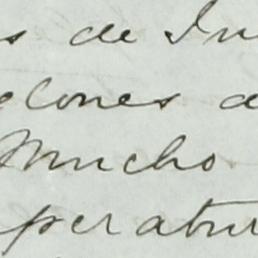 s de In
glones a
Mucho
peratur